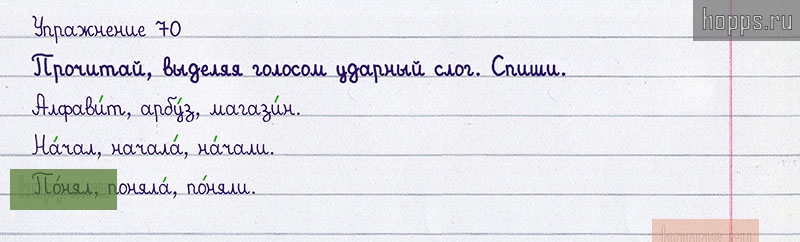 Упражнение 70
hopps.ru
Прочитай, выделяя голосом ударный слог. Спиши.
Алфави́т, арбу́з, магази́н.
На́чал, начала́, на́чали.
По́нял, поняла́, по́няли.
hopps.ru
hopps.ru